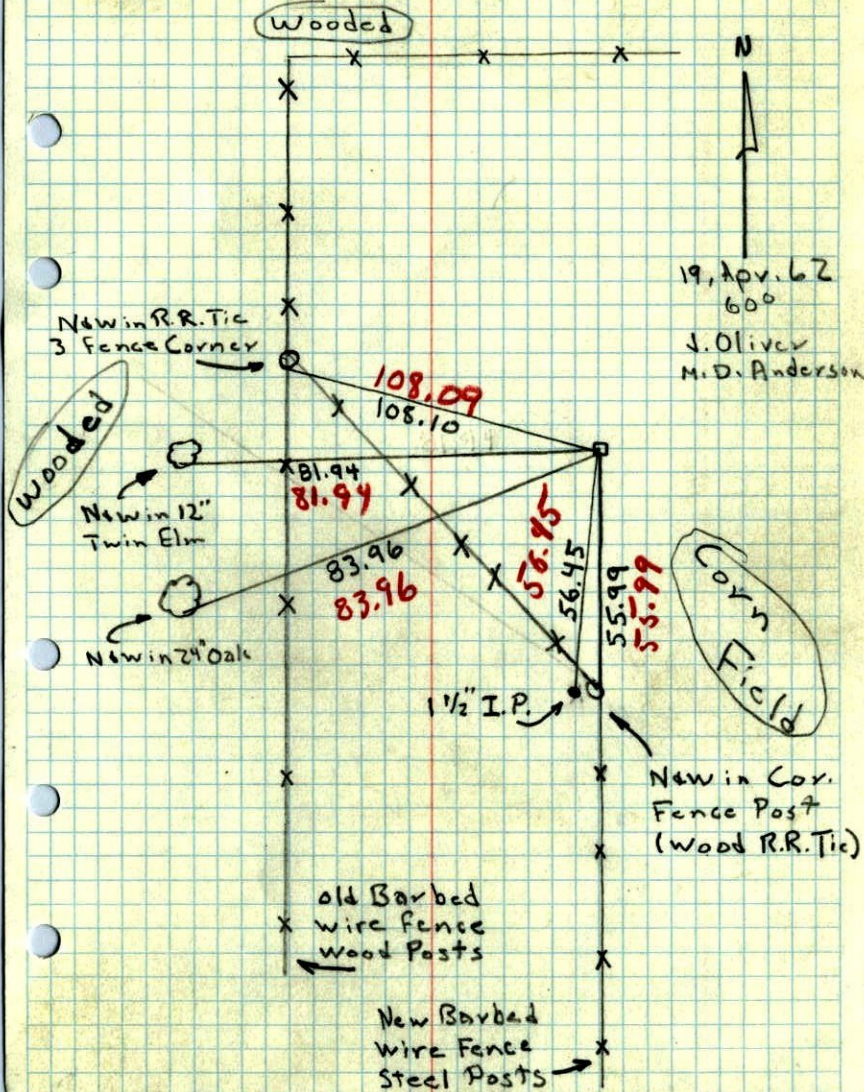 Wooded
N
19, Apr. 62
60°
J. Oliver
M.D. Anderson
N&W in R.R. Tie
3 Fence Corner
108.09
108.10
Wooded
81.94
81.94
N&W in 12"
Twin Elm
83.96
83.96
56.45
56.45
55.99
55.99
Corn
Field
N&W in 24" Oak
1 1/2" I.P.
N&W in Cor.
Fence Post
(Wood R.R. Tie)
old Barbed
wire Fence
Wood Posts
New Barbed
Wire Fence
Steel Posts